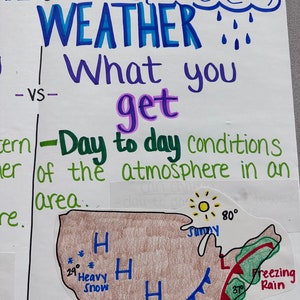 WEATHER
What you
-VS-
get
ern -Day to day conditions
er of the atmosphere in an
area...
re.
80°
Sunny
H
29° Heavy
Snow
H
H
L
Freezing
Rain
37°